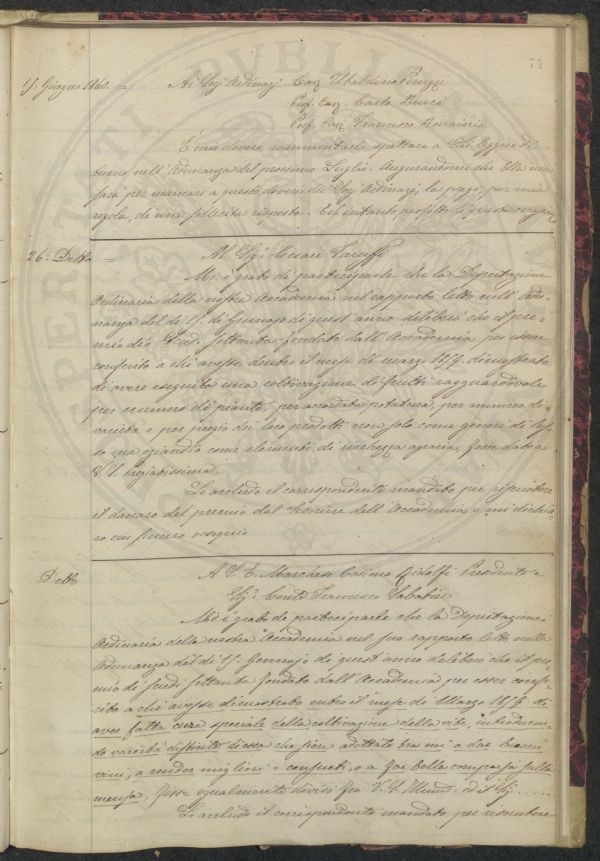 74
15. Giugno 1860. = Ai Sig.i Ordinarj Cav. Ubaldino Peruzzi
Prof. Cav. Carlo Burci
Prof. Cav. Francesco Bonaini
È mio dovere rammentare spettare a Lei leggere di
turno nell'Adunanza del prossimo Luglio. Augurandomi che Ella non
sarà per mancare a questo dovere de' Sig.i Ordinarj, la prego, per mia
regola, di una sollecita risposta. Ed intanto profitto di questa
26. Detto = Al Sig.r Cesare Taruffi
Mi è grato di parteciparle che la Deputazione
Ordinaria della nostra Accademia nel rapporto letto nell'Adu-
nanza del dì 15. di Gennajo di quest'anno deliberò che il pre-
mio di Scudi settanta fondato dall'Accademia per esser
conferito a chi avesse dentro il mese di marzo 1859. dimostrato
di avere eseguita una coltivazione di frutti ragguardevole
per numero di piante, per accordata potatura, per numero di
varietà e per pregio dei loro prodotti non solo come generi di lus-
so ma eziandio come elementi di ricchezza agraria, fosse dato a
V. S. Pregiatissima.
Le accludo il corrispondente mandato per riscuotere
il danaro del premio dal Tesoriere dell'Accademia e mi dichia-
ro con sincero ossequio
Detto A S. E. Marchese Cosimo Ridolfi Presidente =
Sig.r Conte Francesco Sabatier
Mi è grato di parteciparle che la Deputazione
Ordinaria della nostra Accademia nel suo rapporto letto nella
Adunanza del dì 15. Gennajo di quest'anno deliberò che il pre-
mio di scudi settanta fondato dall'Accademia per esser confe-
rito a chi avesse dimostrato entro il mese di Marzo 1859. di
aver fatta cura speciale della coltivazione della vite, introducen-
do varietà distinte di essa che sien adottate tra noi o dar buoni
vini, a render migliori i consueti, o a far bella comparsa sulla
mensa, fosse egualmente diviso fra V. S. e il Sig. .....
Le accludo il corrispondente mandato per riscuotere